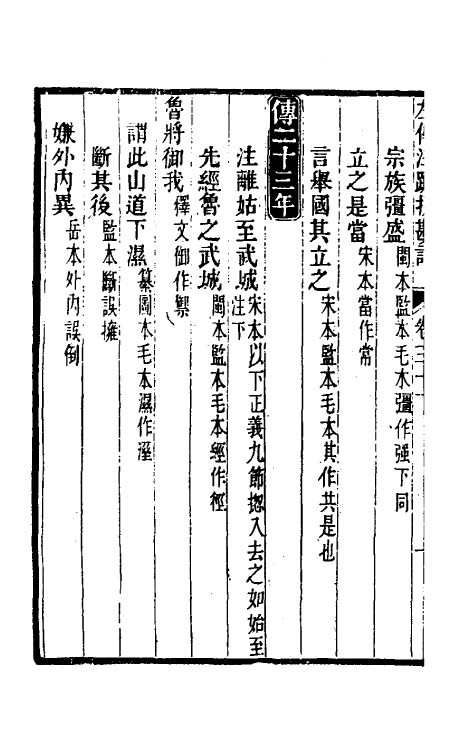 左傳注疏挍勘記 卷三十下 一
宗族彊盛 閩本監本毛本彊作强下同
立之是當 宋本當作常
言舉國其立之 宋本監本毛本其作共是也
傳二十三年
注離姑至武城 宋本以下正義九節揔入去之如始至注下
先經魯之武城 閩本監本毛本經作徑
魯將御我 釋文御作禦
謂此山道下濕 纂圖本毛本濕作溼
斷其後 監本斷誤擁
嫌外内異 岳本外内誤倒